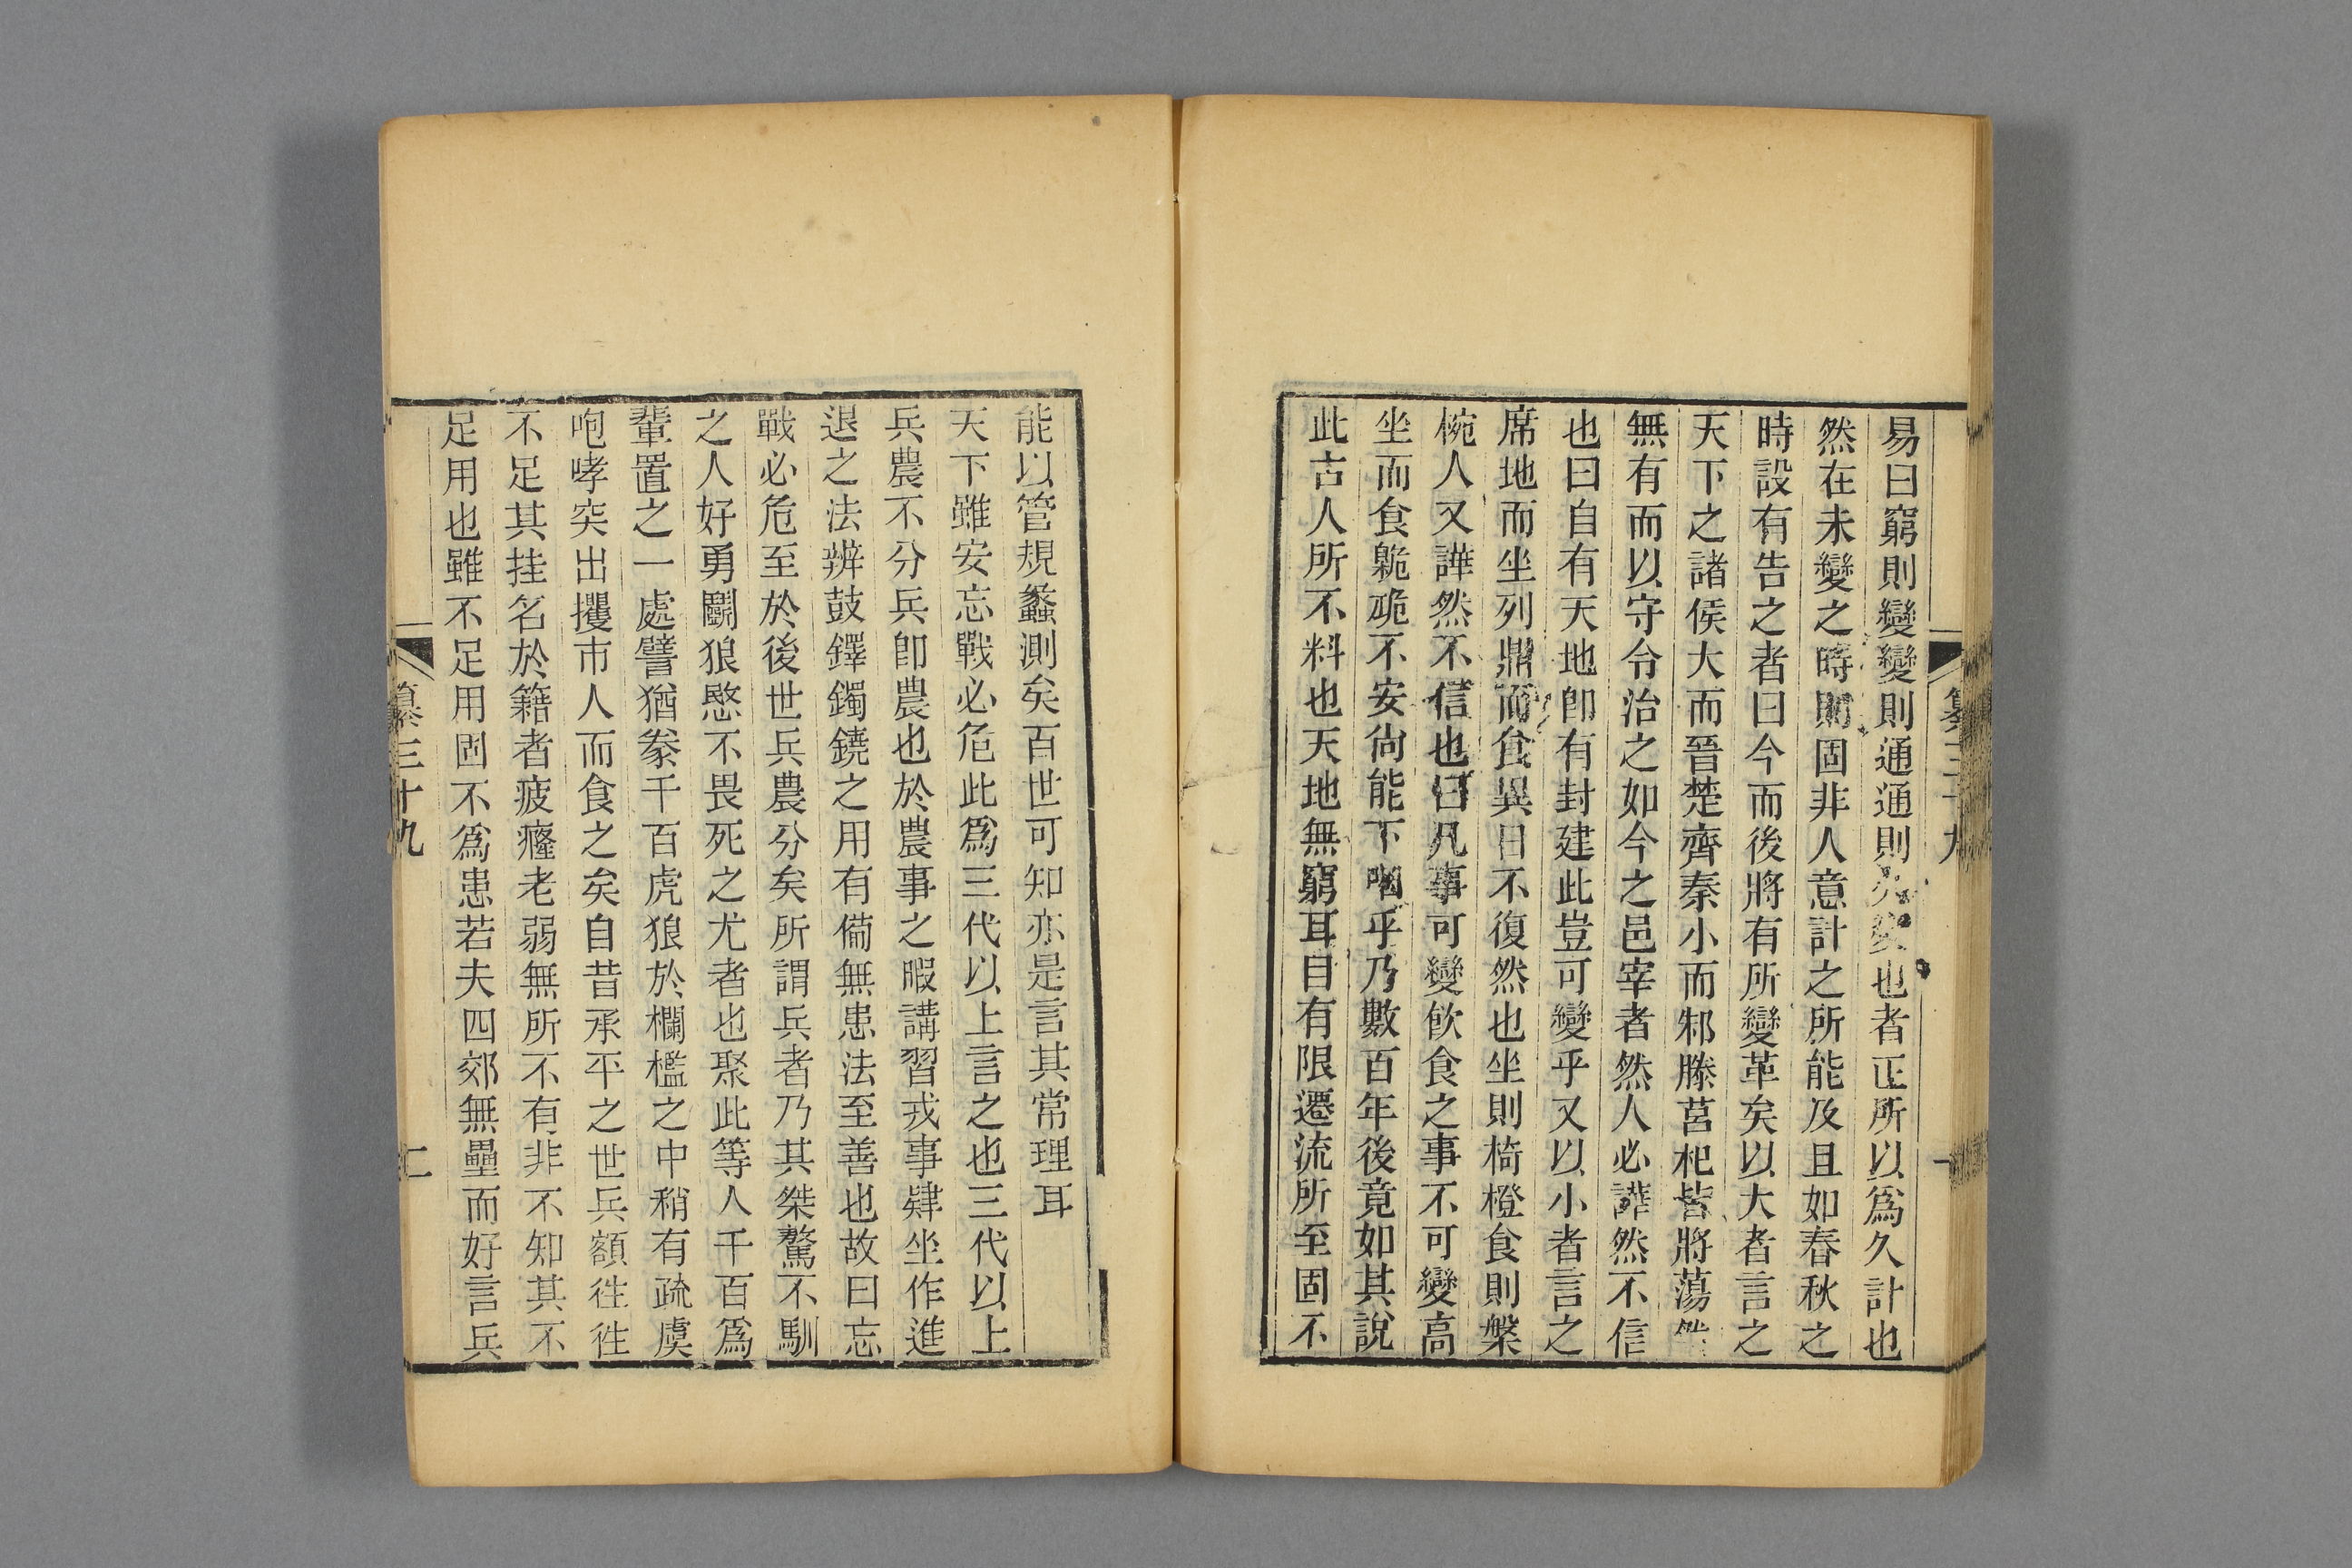 易曰窮則變變則通通則久變也者正所以爲久計也
然在未變之時則固非人意計之所能及且如春秋之
時設有告之者曰今而後將有所變革矣以大者言之
天下之諸侯大而晉楚齊秦小而邾滕莒杞皆將蕩然
無有而以守令治之如今之邑宰者然人必譁然不信
也曰自有天地卽有封建此豈可變乎又以小者言之
席地而坐列鼎而食異日不復然也坐則椅橙食則槃
椀人又譁然不信也曰凡事可變飮食之事不可變高
坐而食臲硊不安尙能下咽乎乃數百年後竟如其說
此古人所不料也天地無窮耳目有限遷流所至固不
纂三十九
一
能以管規蠡測矣百世可知亦是言其常理耳
天下雖安忘戰必危此爲三代以上言之也三代以上
兵農不分兵卽農也於農事之暇講習戎事肄坐作進
退之法辨鼓鐸鐲鐃之用有備無患法至善也故曰忘
戰必危至於後世兵農分矣所謂兵者乃其桀驁不馴
之人好勇鬭狠愍不畏死之尤者也聚此等人千百爲
輩置之一處譬猶豢千百虎狼於欄檻之中稍有疏虞
咆哮突出攫市人而食之矣自昔承平之世兵額徃徃
不足其挂名於籍者疲癃老弱無所不有非不知其不
足用也雖不足用固不爲患若夫四郊無壘而好言兵
纂三十九
二